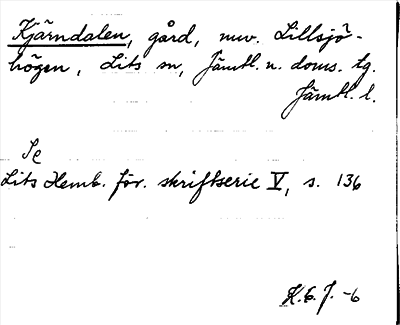 Kjärndalen, gård, nuv. Lillsjö-
högen, Lits sn, Jämtl. n. doms. tg.
Jämtl. l.
Se
Lits Hemb. för. skriftserie V, s. 136
K.E.J. -6